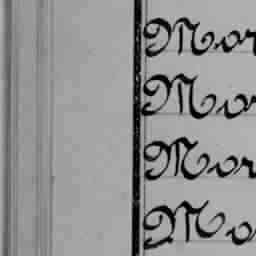 Mor
Mor
Mor
Mo